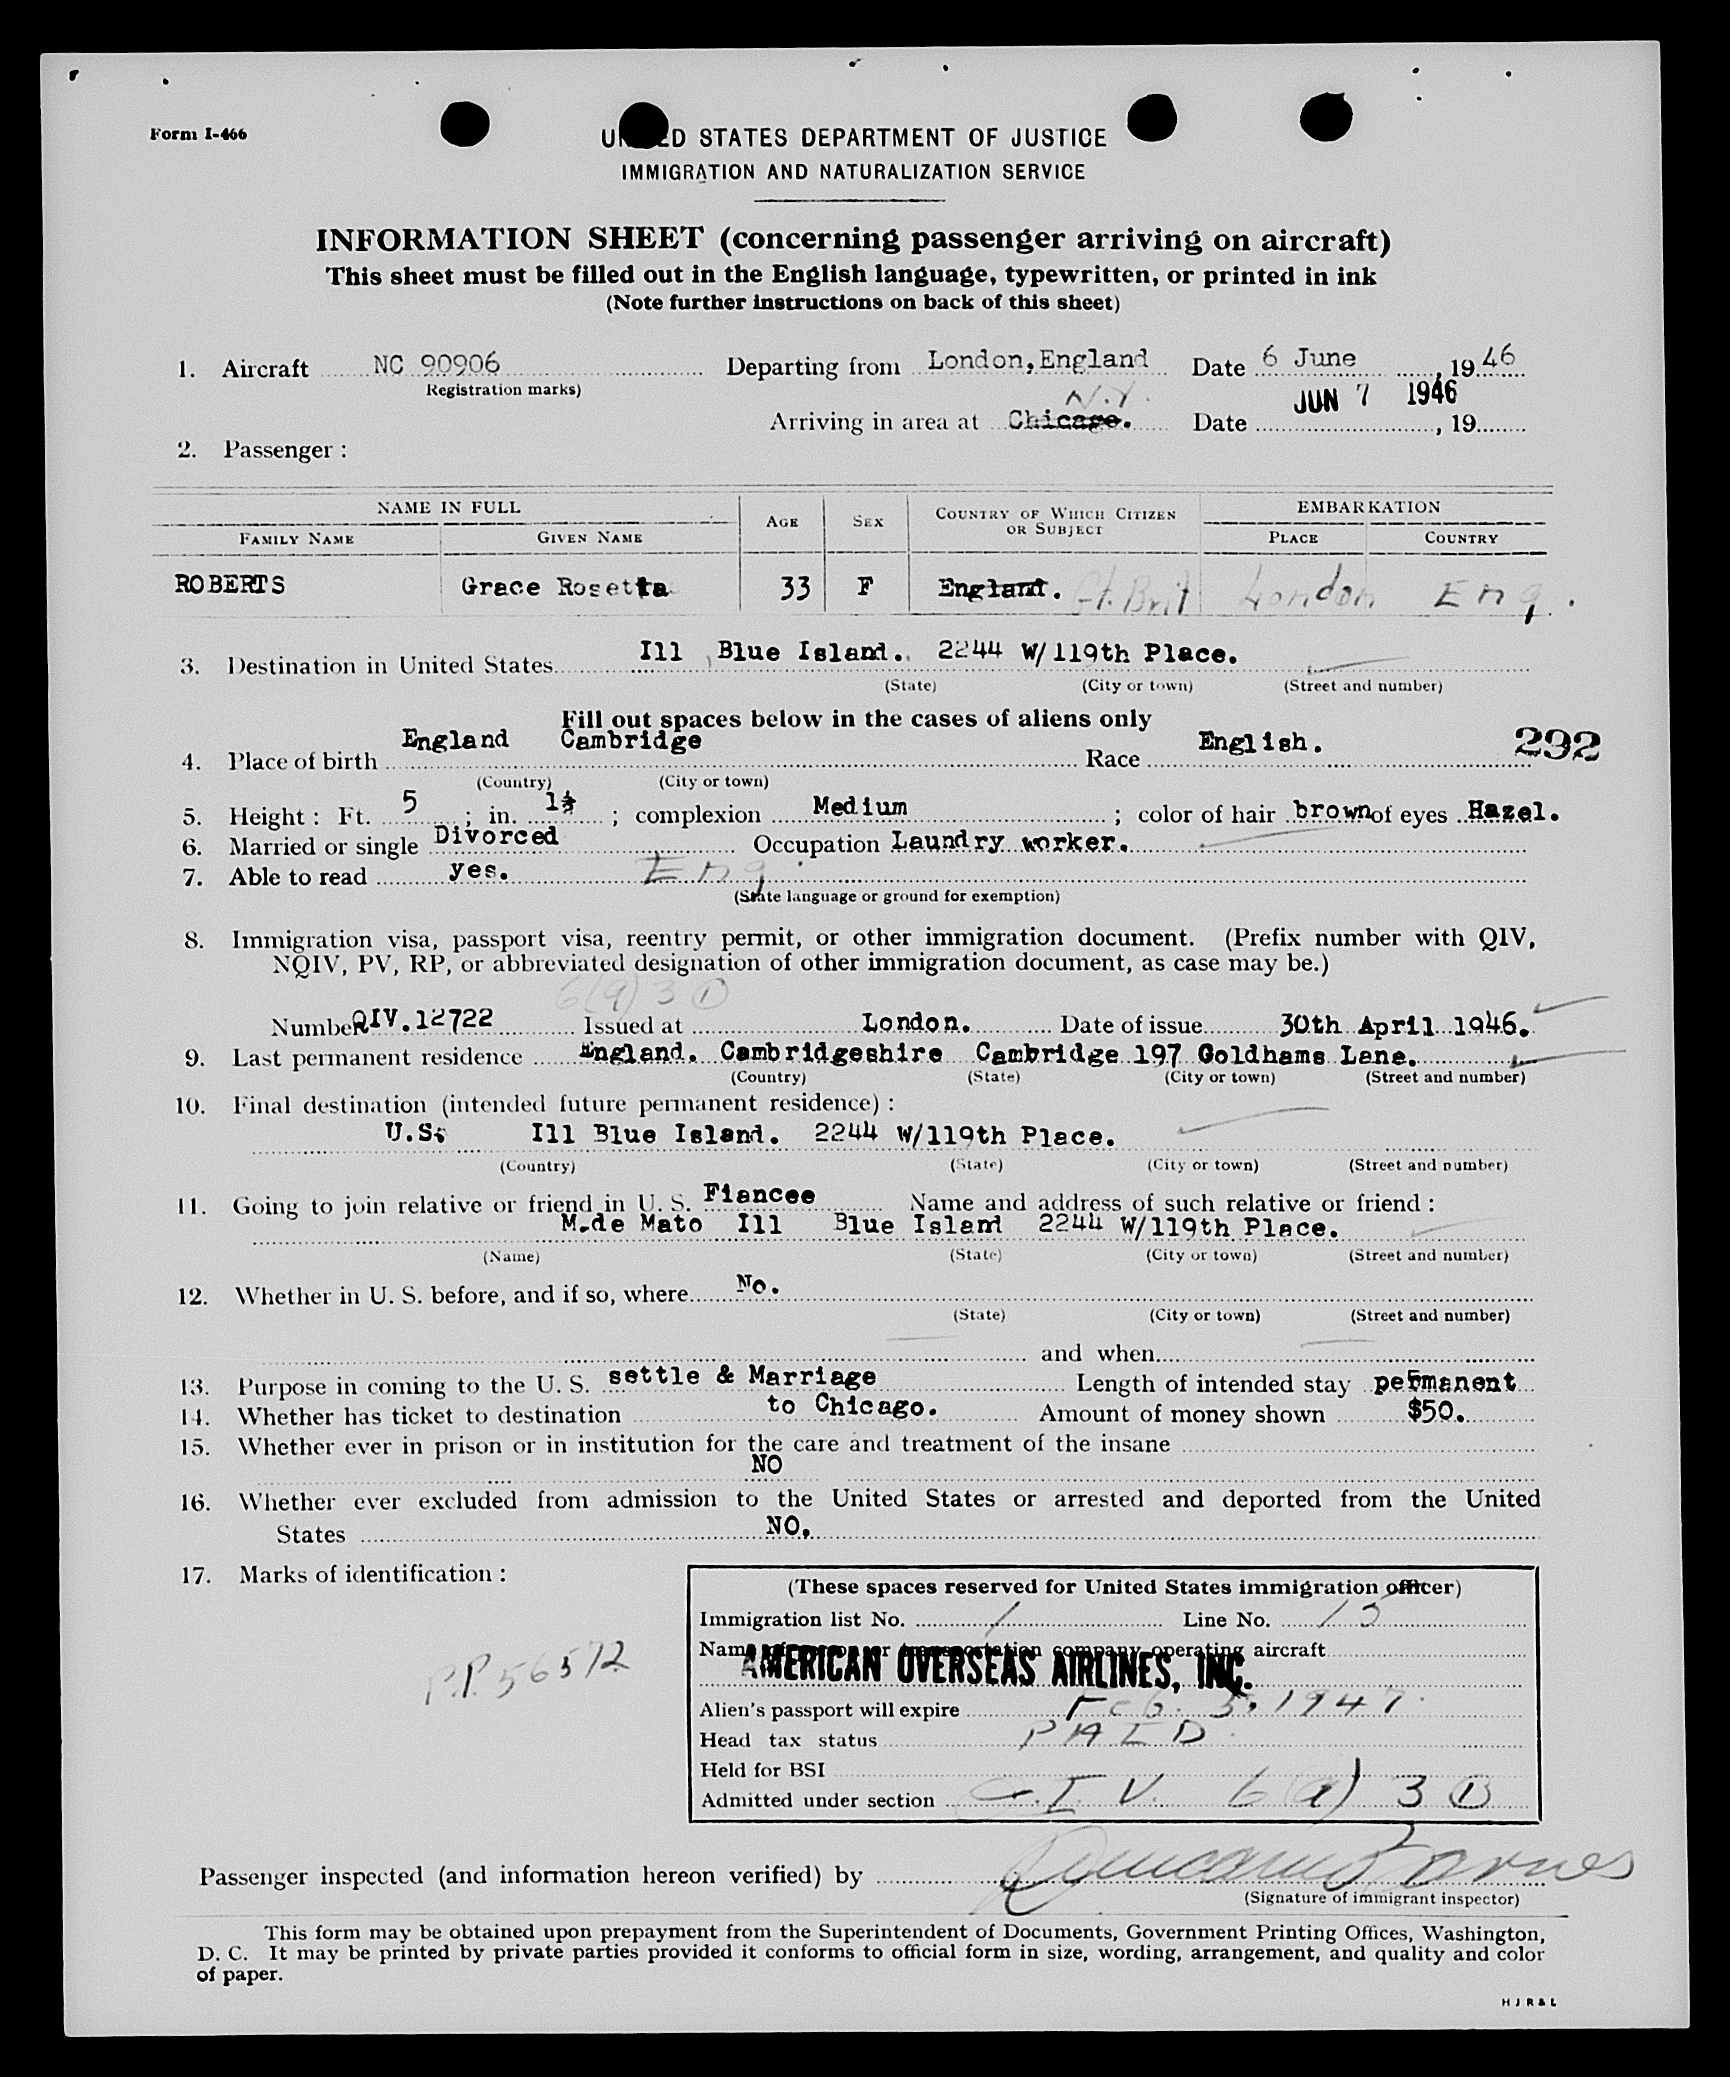 Form I-466
UNITED STATES DEPARTMENT OF JUSTICE
IMMIGRATION AND NATURALIZATION SERVICE
INFORMATION SHEET (concerning passenger arriving on aircraft)
This sheet must be filled out in the English language, typewritten, or printed in ink
(Note further instructions on back of this sheet)
1. Aircraft NC 90906 Departing from London, England Date 6 June, 1946
(Registration marks)
N.Y. JUN 7 1946
Arriving in area at Chicago. Date , 19
2. Passenger :
NAME IN FULL AGE SEX COUNTRY OF WHICH CITIZEN OR SUBJECT EMBARKATION
FAMILY NAME GIVEN NAME PLACE COUNTRY
ROBERTS Grace Rosetta 33 F England. Gt. Brit London Eng.
3. Destination in United States Ill , Blue Island. 2244 W/119th Place.
(State) (City or town) (Street and number)
Fill out spaces below in the cases of aliens only
4. Place of birth England Cambridge Race English. 292
(Country) (City or town)
5. Height : Ft. 5 ; in. 1½ ; complexion Medium ; color of hair brown of eyes Hazel.
6. Married or single Divorced Occupation Laundry worker.
7. Able to read yes. Eng.
(State language or ground for exemption)
8. Immigration visa, passport visa, reentry permit, or other immigration document. (Prefix number with QIV,
NQIV, PV, RP, or abbreviated designation of other immigration document, as case may be.)
6(a) 3 (1)
Number QIV.12722 Issued at London. Date of issue 30th April 1946.
9. Last permanent residence England. Cambridgeshire Cambridge 197 Goldhams Lane.
(Country) (State) (City or town) (Street and number)
10. Final destination (intended future permanent residence) :
U.S. Ill Blue Island. 2244 W/119th Place.
(Country) (State) (City or town) (Street and number)
11. Going to join relative or friend in U. S. Fiancee Name and address of such relative or friend :
M.de Mato Ill Blue Island 2244 W/119th Place.
(Name) (State) (City or town) (Street and number)
12. Whether in U. S. before, and if so, where No.
(State) (City or town) (Street and number)
and when
13. Purpose in coming to the U. S. settle & Marriage Length of intended stay permanent
14. Whether has ticket to destination to Chicago. Amount of money shown $50.
15. Whether ever in prison or in institution for the care and treatment of the insane
NO
16. Whether ever excluded from admission to the United States or arrested and deported from the United
States NO.
17. Marks of identification :
P.P. 56512
(These spaces reserved for United States immigration officer)
Immigration list No. 1 Line No. 15
Name of or transportation company operating aircraft
AMERICAN OVERSEAS AIRLINES, INC.
Alien's passport will expire Feb. 5, 1947
Head tax status PAID
Held for BSI
Admitted under section Q.I.V. 6(a) 3 (1)
Passenger inspected (and information hereon verified) by
(Signature of immigrant inspector)
This form may be obtained upon prepayment from the Superintendent of Documents, Government Printing Offices, Washington,
D. C. It may be printed by private parties provided it conforms to official form in size, wording, arrangement, and quality and color
of paper.
H J R & L